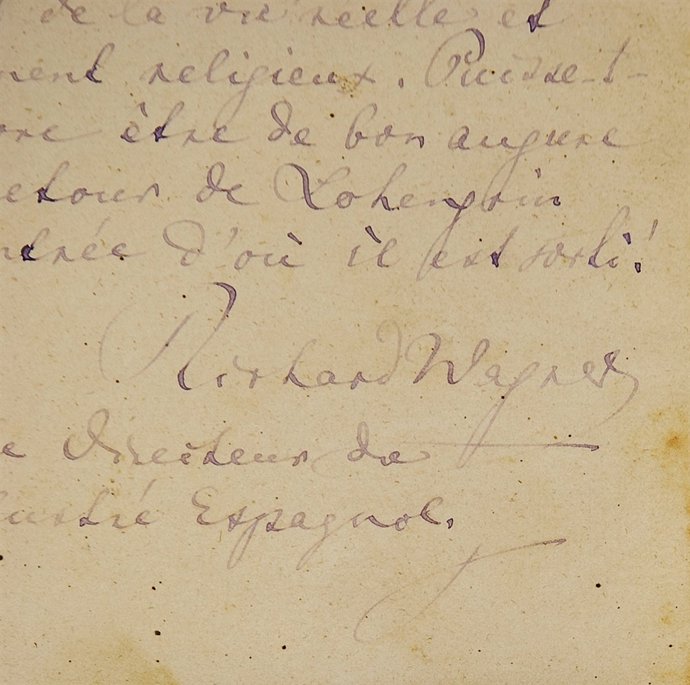 de la vie réelle et
ment religieux. Puisse-t-
ore être de bon augure
etour de Lohengrin
ntrée d'où il est sorti!
Richard Wagner
e Directeur de
lustré Espagnol.